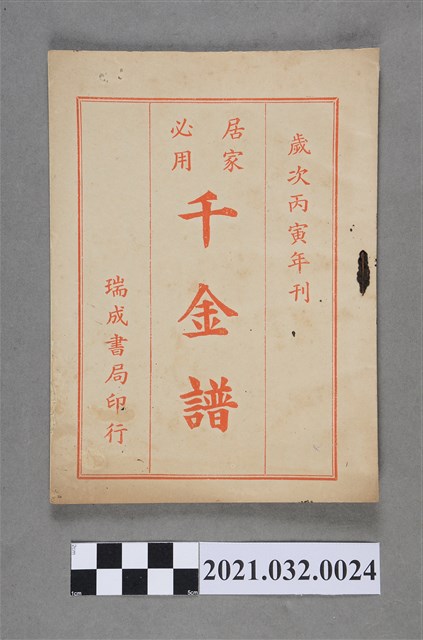 歲次丙寅年刊
居家
必用
千金譜
瑞成書局印行
2021.032.0024
1cm
5cm